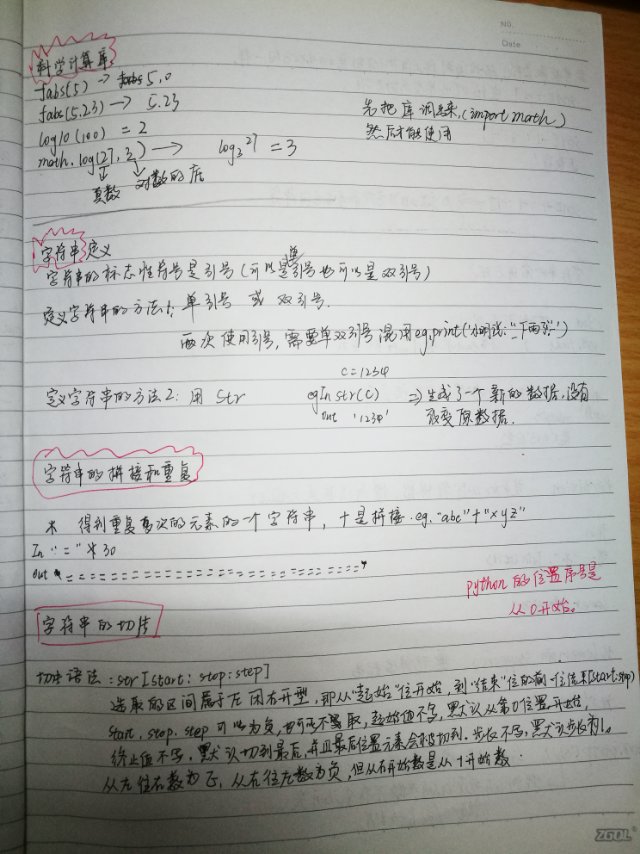 NO.
Date
科学计算库
fabs(5) → 5.0
fabs(5.23) → 5.23
先把库调出来,(import math)
log10(100) = 2
然后才能使用
math.log(27,3) → log₃27 = 3
真数 对数的底
字符串定义
字符串的标志性符号是引号(可以是单引号也可以是双引号)
定义字符串的方法1: 单引号 或 双引号.
两次使用引号,需要单双引号混用eg.print('小明说:"下雨了"')
c=1234
定义字符串的方法2: 用 str eg In str(c) ⇒生成了一个新的数据,没有
out '1234' 改变原数据.
字符串的拼接和重复
* 得到重复多次的元素的一个字符串, +是拼接.eg."abc"+"xyz"
In "="*30
out "=============================="
python的位置序号是
从0开始。
字符串的切片
切片语法:str[start:stop:step]
选取的区间属于左闭右开型,即从"起始"位开始,到"结束"位的前一位结束[start:stop)
start,stop,step可以为负,也可不取,起始值不写,默认从第0位置开始,
终止值不写,默认切到最后,并且最后位置元素会被切到.步长不写,默认步长为1。
从左往右数为正,从右往左数为负,但从右开始数是从1开始数.
ZGOL